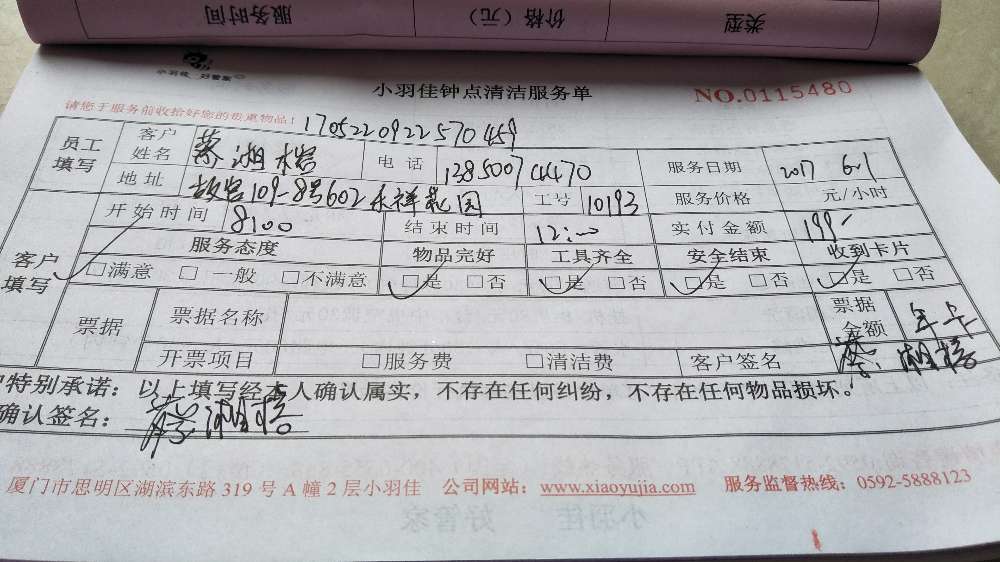 服务时间 价格（元） 类型
小羽佳 好管家
小羽佳钟点清洁服务单 NO.0115480
请您于服务前收拾好您的贵重物品！ 1705220922570459
员工填写 客户姓名 蔡湘榕 电话 13850074470 服务日期 2017 6.1
地址 故宫109-8号602永祥花园 工号 10193 服务价格 元/小时
开始时间 8:00 结束时间 12:00 实付金额 199
客户填写 服务态度 物品完好 工具齐全 安全结束 收到卡片
□满意 □一般 □不满意 □是 □否 □是 □否 □是 □否 □是 □否
票据 票据名称 票据金额 年卡
开票项目 □服务费 □清洁费 客户签名 蔡湘榕
特别承诺：以上填写经本人确认属实，不存在任何纠纷，不存在任何物品损坏。
确认签名： 蔡湘榕
厦门市思明区湖滨东路 319 号 A 幢 2 层小羽佳 公司网站：www.xiaoyujia.com 服务监督热线：0592-5888123
小羽佳 好管家